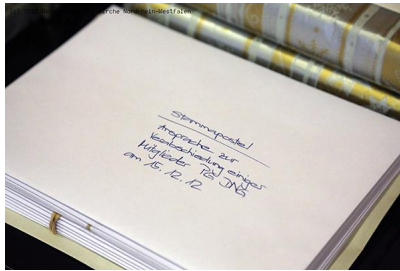 rche Nordrhein-Westfalen
Stammapostel
Ansprache zur
Verabschiedung einiger
Mitglieder PG DNG
am 15.12.12